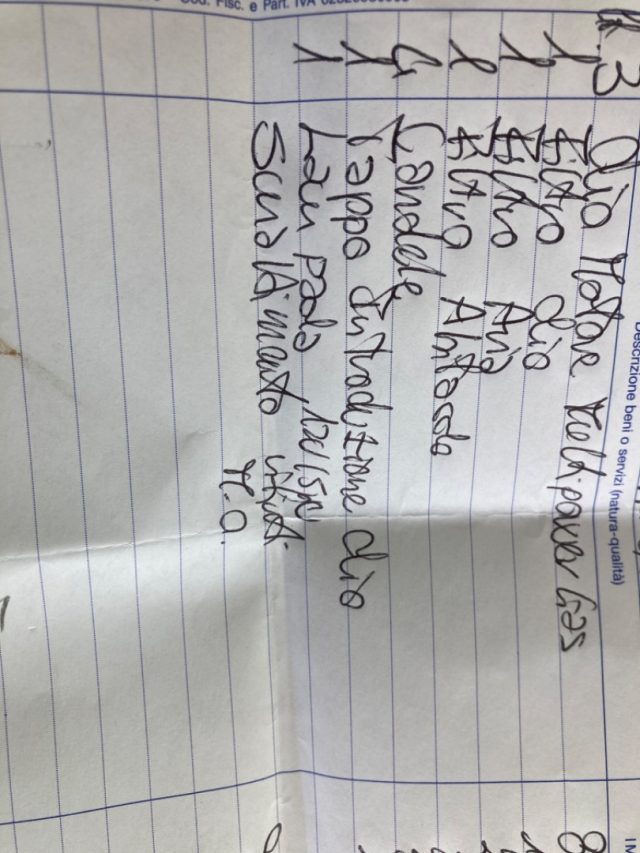 Cod. Fisc. e Part. IVA
Descrizione beni o servizi (natura-qualità)
3 Olio Motore Multipower Gas
1 Filtro Olio
1 Filtro Aria
1 Filtro Abitacolo
4 Candele
1 Tappo Introduzione Olio
1 Lampada 12V/5W
Smaltimento rifiuti
M.O.